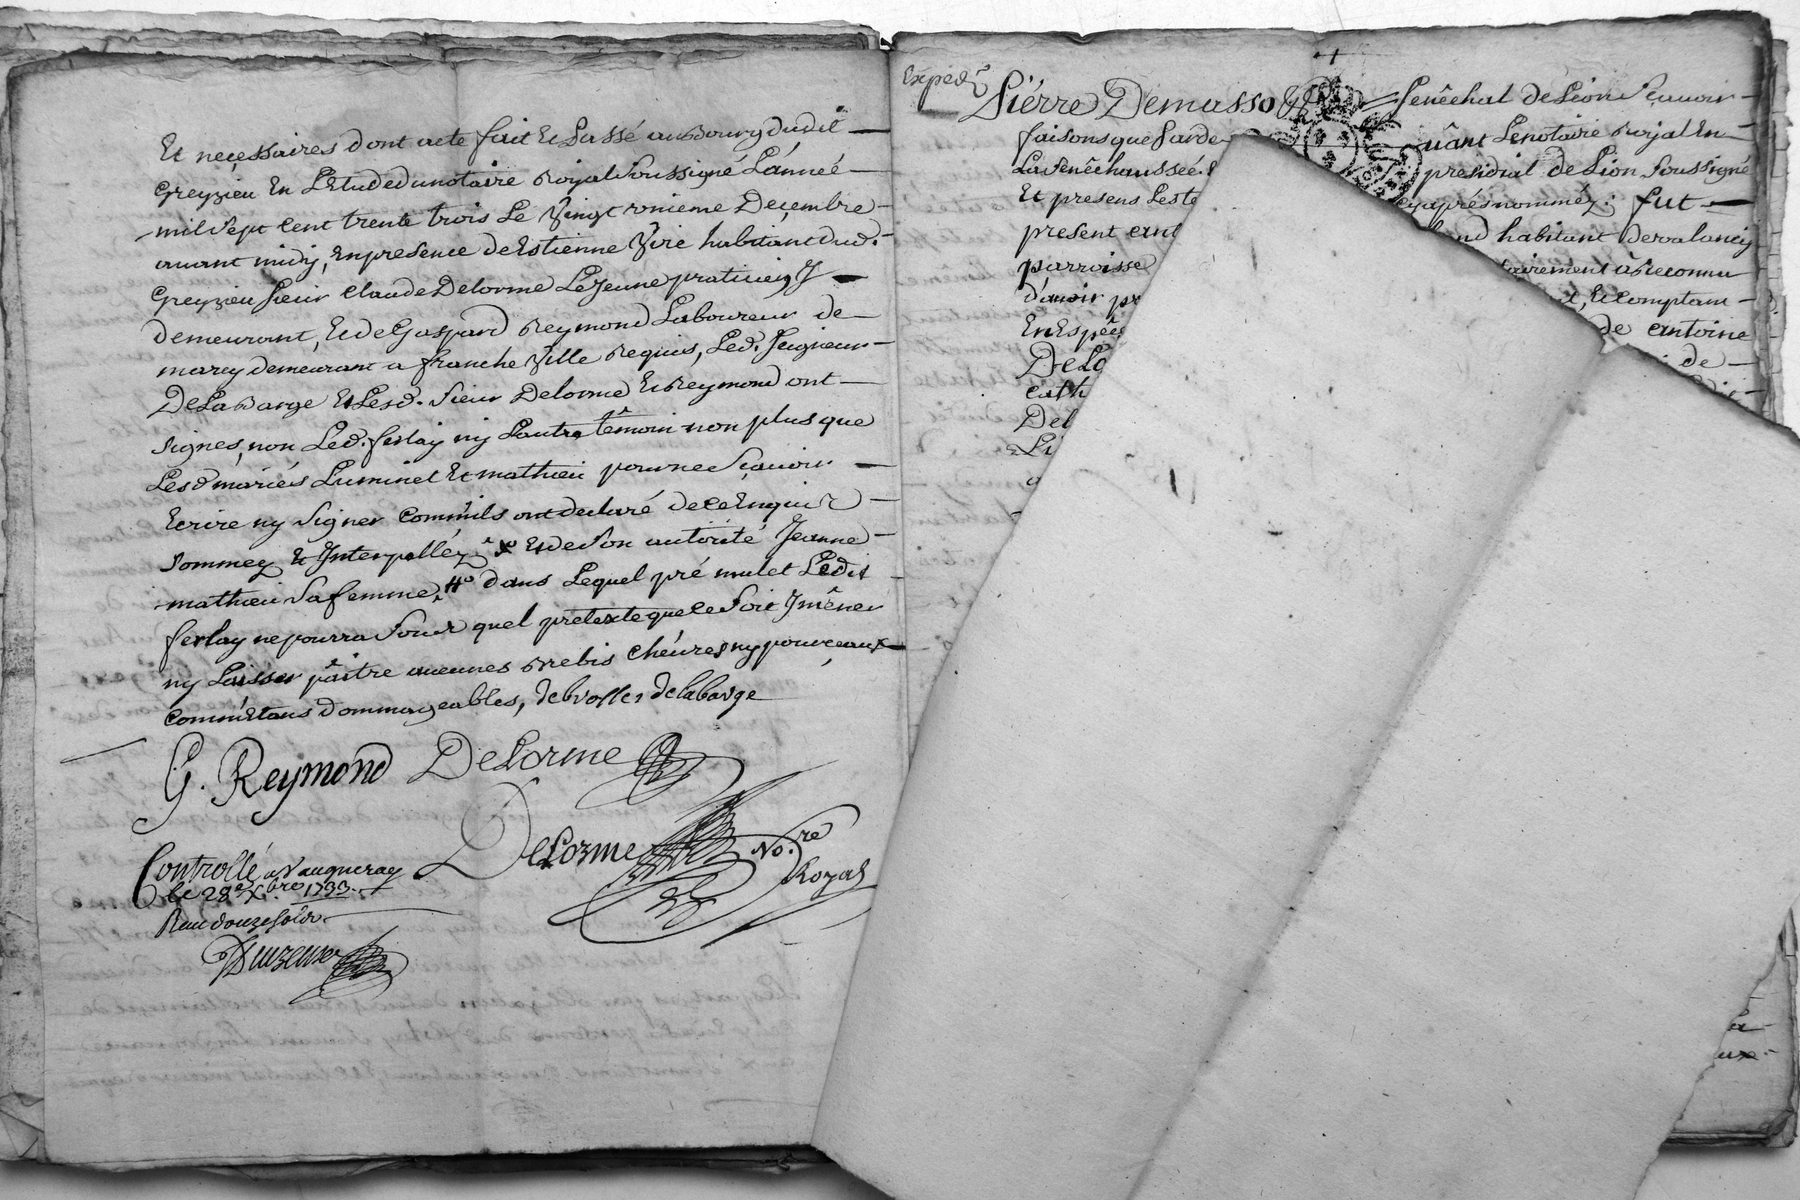 Et necessaires dont acte fait Et Passé au Bourg dudit
Greyzieu En L'Etude du notaire Royal Soussigné L'année
mil Sept cent trente trois Le Vingt onzieme Decembre
avant midy, En presence de Estienne Vvie habitant dud.
Greyzieu Sieur Claude Delorme Le Jeune praticien Y
demeurant, Et de Gaspard Reymond Laboureur de
marcy demeurant a franche Ville Requis, Led. Seigneur
De La Barge Et Lesd. Sieur Delorme Et Reymond ont
signes, non Led. ferlay ny L'autre têmoin non plus que
Lesd mariés Luminet Et mathieu pour ne Sçavoir
Ecrire ny Signer comm'ils ont declaré de ce Enquis
Sommez Et Interpellez Et de Son autorité Jeanne
mathieu Sa femme, dans Lequel pré mulet Ledit
ferlay ne pourra Sous quel pretexte que ce Soit Y mêner
ny Laisser paître aucunes Brebis cheures ny pourceaux
comm'Etans dommageables, debrosses delabarge
G. Reymond DeLorme
DeLorme No.re
Royal
Controllé a Vaugneray
le 28e Xbre 1733.
Reçu douze Sols
Expedé
Pierre Demasso Senêchal de Lion Sçavoir
faisons que Parde vant Le notaire Royal En
La Senêchaussée presidial de Lion Soussigné
Et presens Les te cyaprés nommés: fut
present and habitant devalancy
parroisse tairement a Reconnu
d'avoir t, Et comptam
En Espêc de antoine
De Lo de
cath
Del